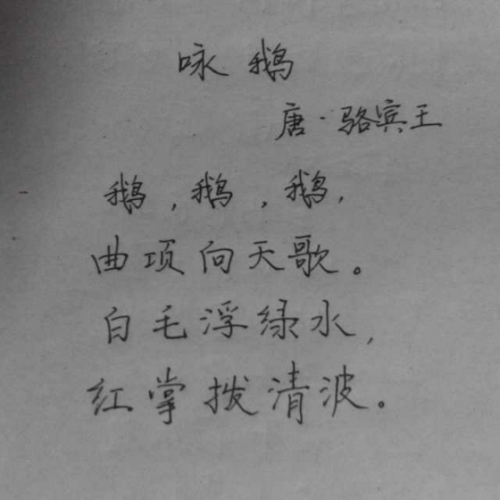 咏鹅
唐·骆宾王
鹅,鹅,鹅,
曲项向天歌。
白毛浮绿水,
红掌拨清波。